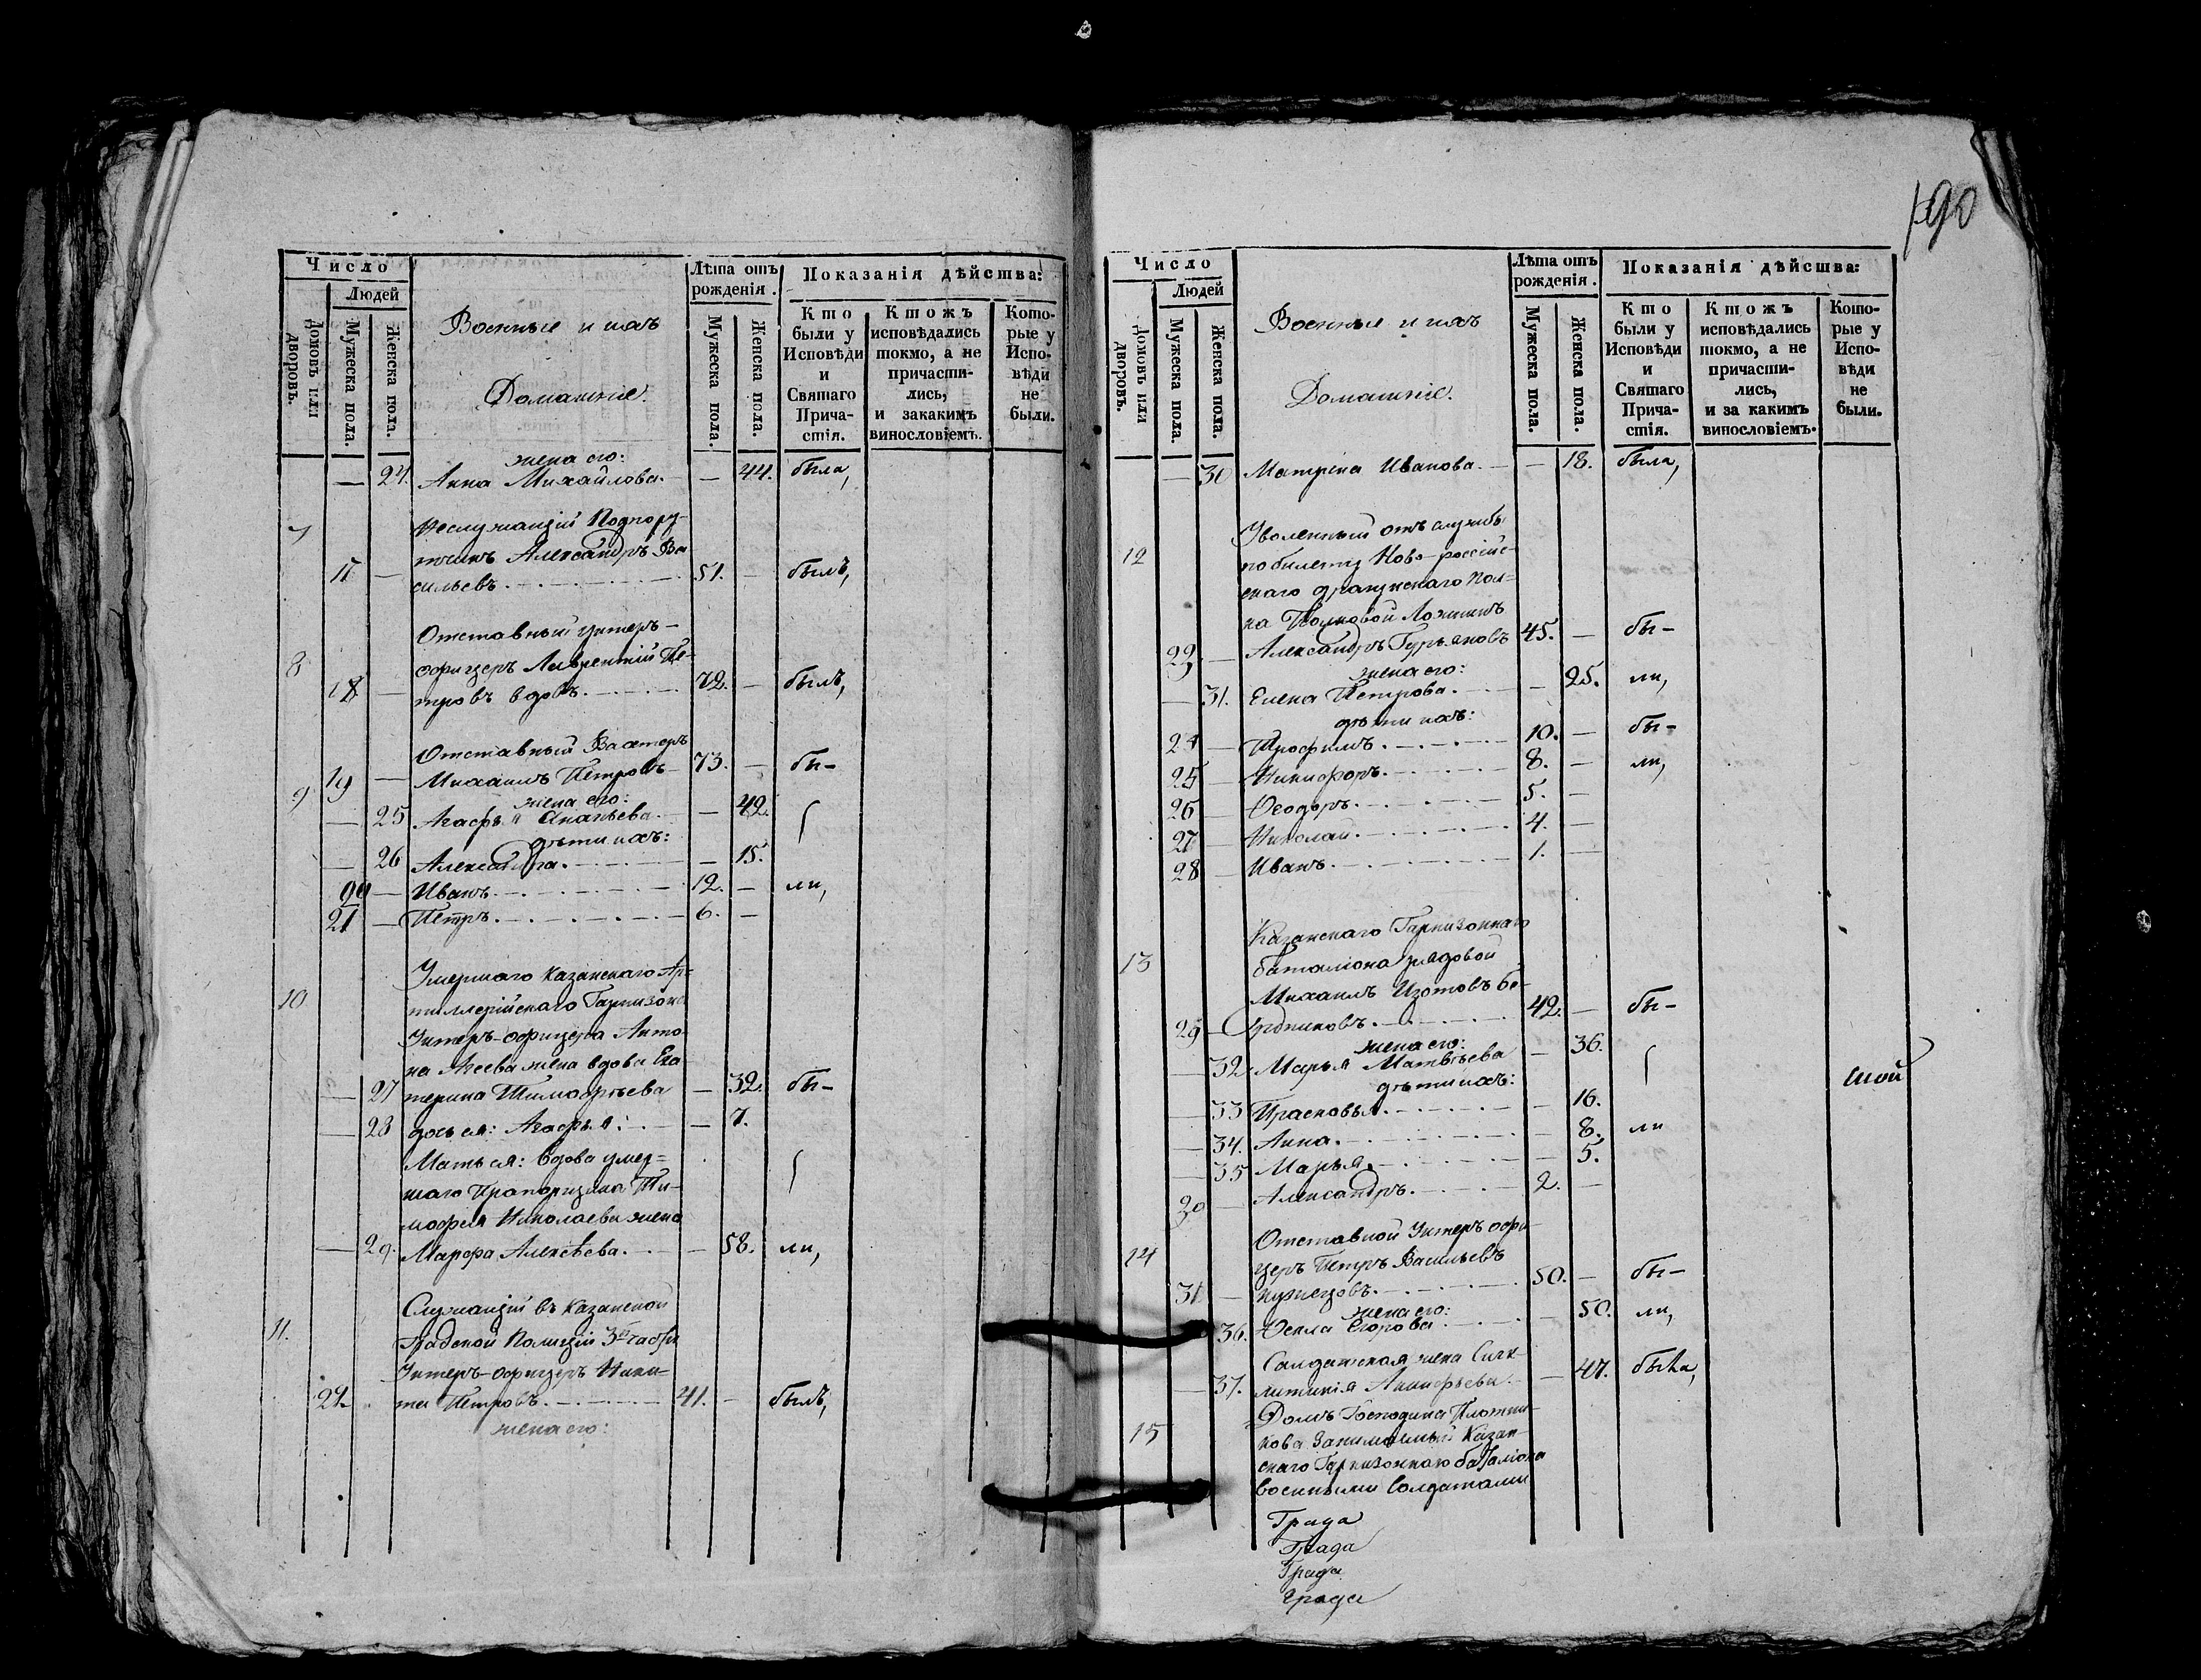 190
Число
Людей
Домовъ или дворовъ.
Мужеска пола.
Женска пола.
Военные и ихъ
Домашніе.
Лѣта отъ рожденія.
Мужеска пола.
Женска пола.
Показанія дѣйства:
Кто были у Исповѣди и Святаго Прича- стія.
Ктожъ исповѣдались токмо, а не причасти- лись, и закакимъ винословіемъ.
Кото- рые у Испо- вѣди не были.
жена его:
— 24. Анна Михайлова. — 44. была,
7 Неслужащій Подпору-
тчикъ Александръ Ва
17 — сильевъ. 51. — былъ,
Отставный унтеръ-
8 офицеръ Лаврентій Пе-
18 — тровъ вдовъ. 72. — былъ,
Отставный Вахтеръ
19 — Михаилъ Петровъ 73. — бы-
9 жена его:
— 25 Агафья Ананьева. — 42.
дѣти ихъ:
— 26 Александра. — 15.
20 — Иванъ. 12. — ли,
21 — Петръ. 6. —
Умершаго Казанскаго Ар-
10 тиллерійскаго Гарнизона
Унтеръ-офицера Анто-
на Агеева жена вдова Ека
— 27 терина Тимофѣева — 32. бы-
— 28 дочь ея: Агафья: — 7.
Мать ея: вдова умер-
шаго Прапорщика Ти-
мофея Николаева жена
— 29. Марфа Алексѣева. — 58. ли,
Служащій въ Казанской
11. Градской Полиціи 3й части
Унтеръ-офицеръ Ники-
22 та Петровъ. 41. — былъ,
жена его:
Число
Людей
Домовъ или дворовъ.
Мужеска пола.
Женска пола.
Военные и ихъ
Домашніе.
Лѣта отъ рожденія.
Мужеска пола.
Женска пола.
Показанія дѣйства:
Кто были у Исповѣди и Святаго Прича- стія.
Ктожъ исповѣдались токмо, а не причасти- лись, и за какимъ винословіемъ.
Кото- рые у Испо- вѣди не были.
— 30 Матрена Иванова. — 18. была,
Уволенный отъ службы
12 по билету Ново-россійс-
скаго драгунскаго Пол-
ка Полковой
23 — Александръ Гурьяновъ 45. — бы-
жена его:
— 31. Елена Петрова. — 25. ли,
дѣти ихъ:
24 — Трофимъ. 10. — бы-
25 — Никифоръ. 8. — ли,
26 — Ѳеодоръ. 5. —
27 — Николай. 4. —
28 — Иванъ. 1. —
Казанскаго Гарнизоннаго
13 баталіона рядовой
Михаилъ Изотовъ Бе-
29 — 42. — бы-
жена его:
— 32. Марья Матвѣева — 36.
дѣти ихъ:
— 33 Прасковья. — 16.
— 34. Анна. — 8. ли
— 35 Марья. — 5.
30 — Александръ. 2. —
шой
Отставной Унтеръ офи-
14 церъ Петръ Васильевъ
31 — Кузнецовъ. 50. — бы-
жена его:
36. Ѳекла Егорова. — 50. ли,
Салдатская жена Сик-
— 37. литикія — 47. была,
Домъ Господина Плотни-
15 кова Занимаемый Казан-
скаго Гарнизоннаго баталіона
военными Солдатами
Града
Града
Града
Града